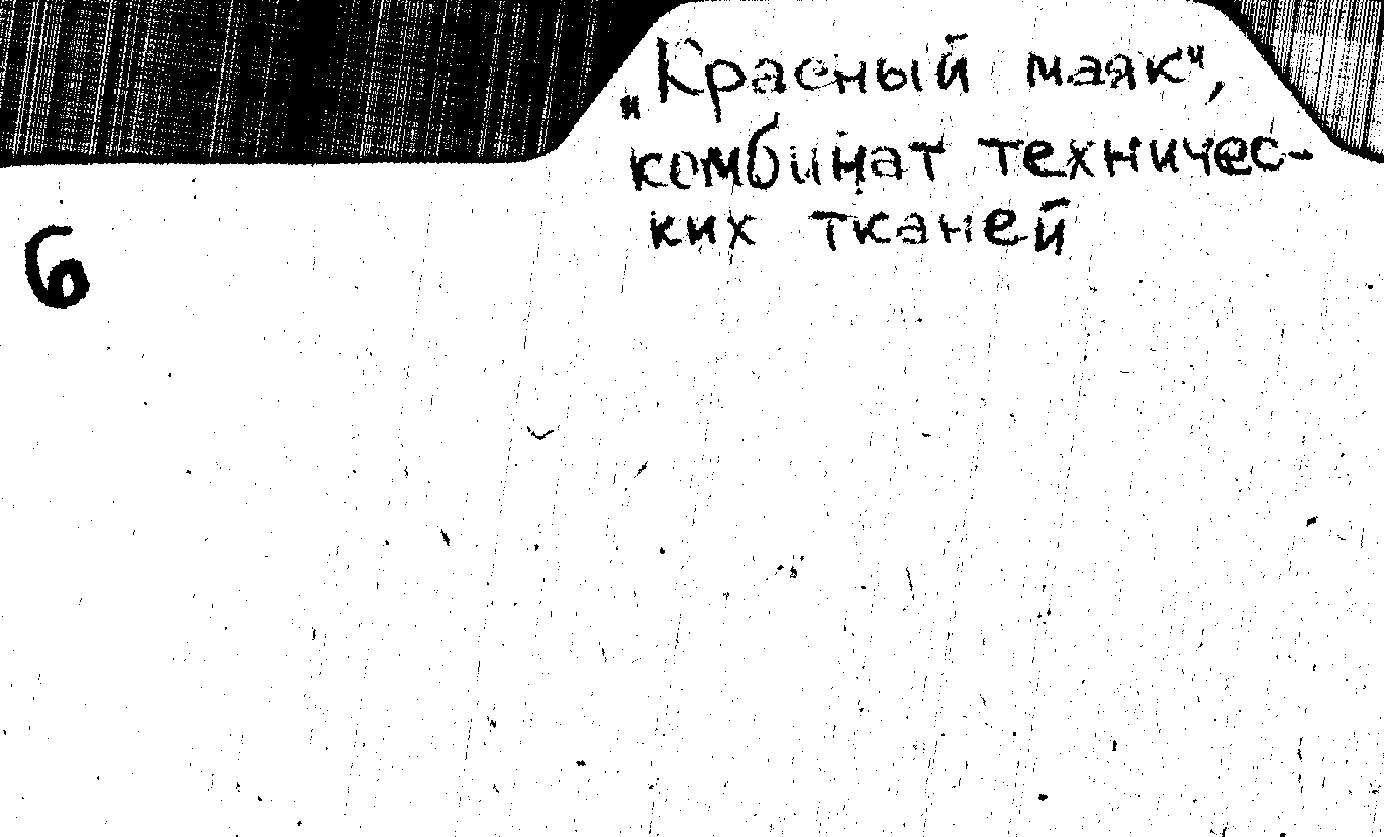 „Красный маяк",
комбинат техничес-
ких тканей
6